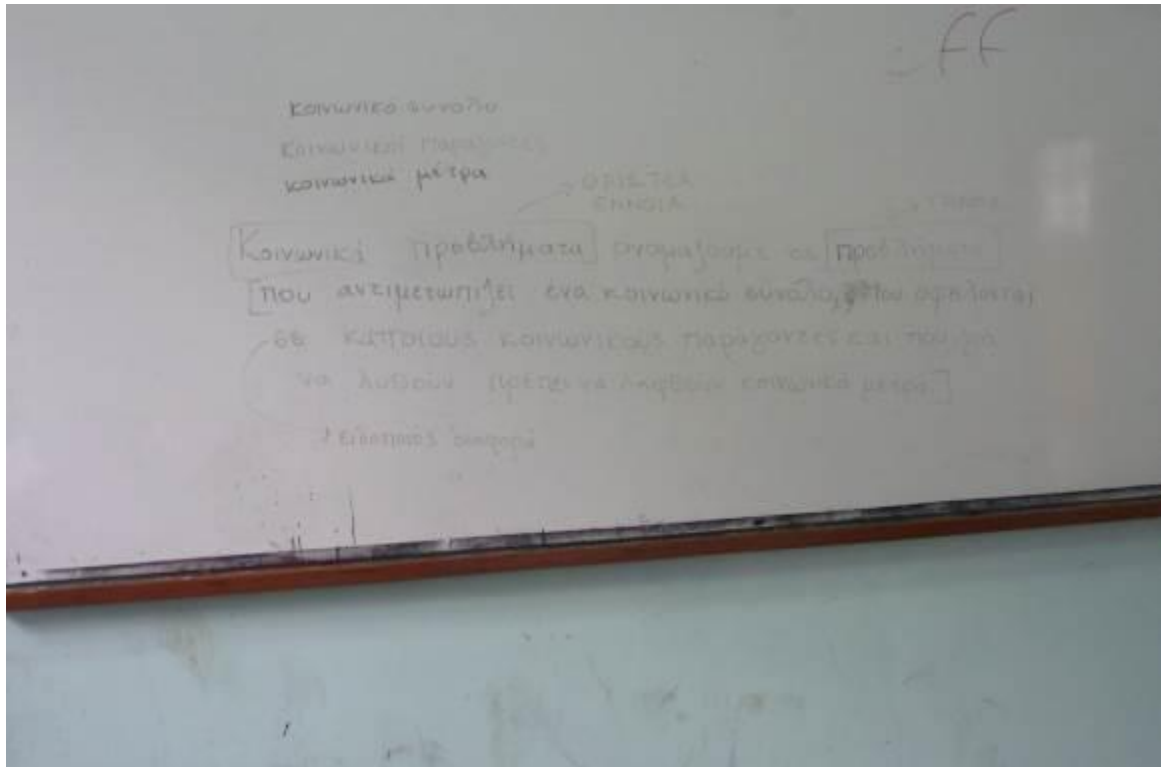 FF
κοινωνικό συνολο
κοινωνικοί παράγοντες
κοινωνικά μέτρα
ΟΡΙΣΤΕΑ
ΕΝΝΟΙΑ
Κοινωνικά προβλήματα ονομάζουμε τα προβλήματα
που αντιμετωπίζει ενα κοινωνικό συνολο, που οφείλονται
σε κάποιους κοινωνικούς παράγοντες και που για
να λυθούν πρέπει να ληφθούν κοινωνικά μέτρα
ειδοποιός διαφορά